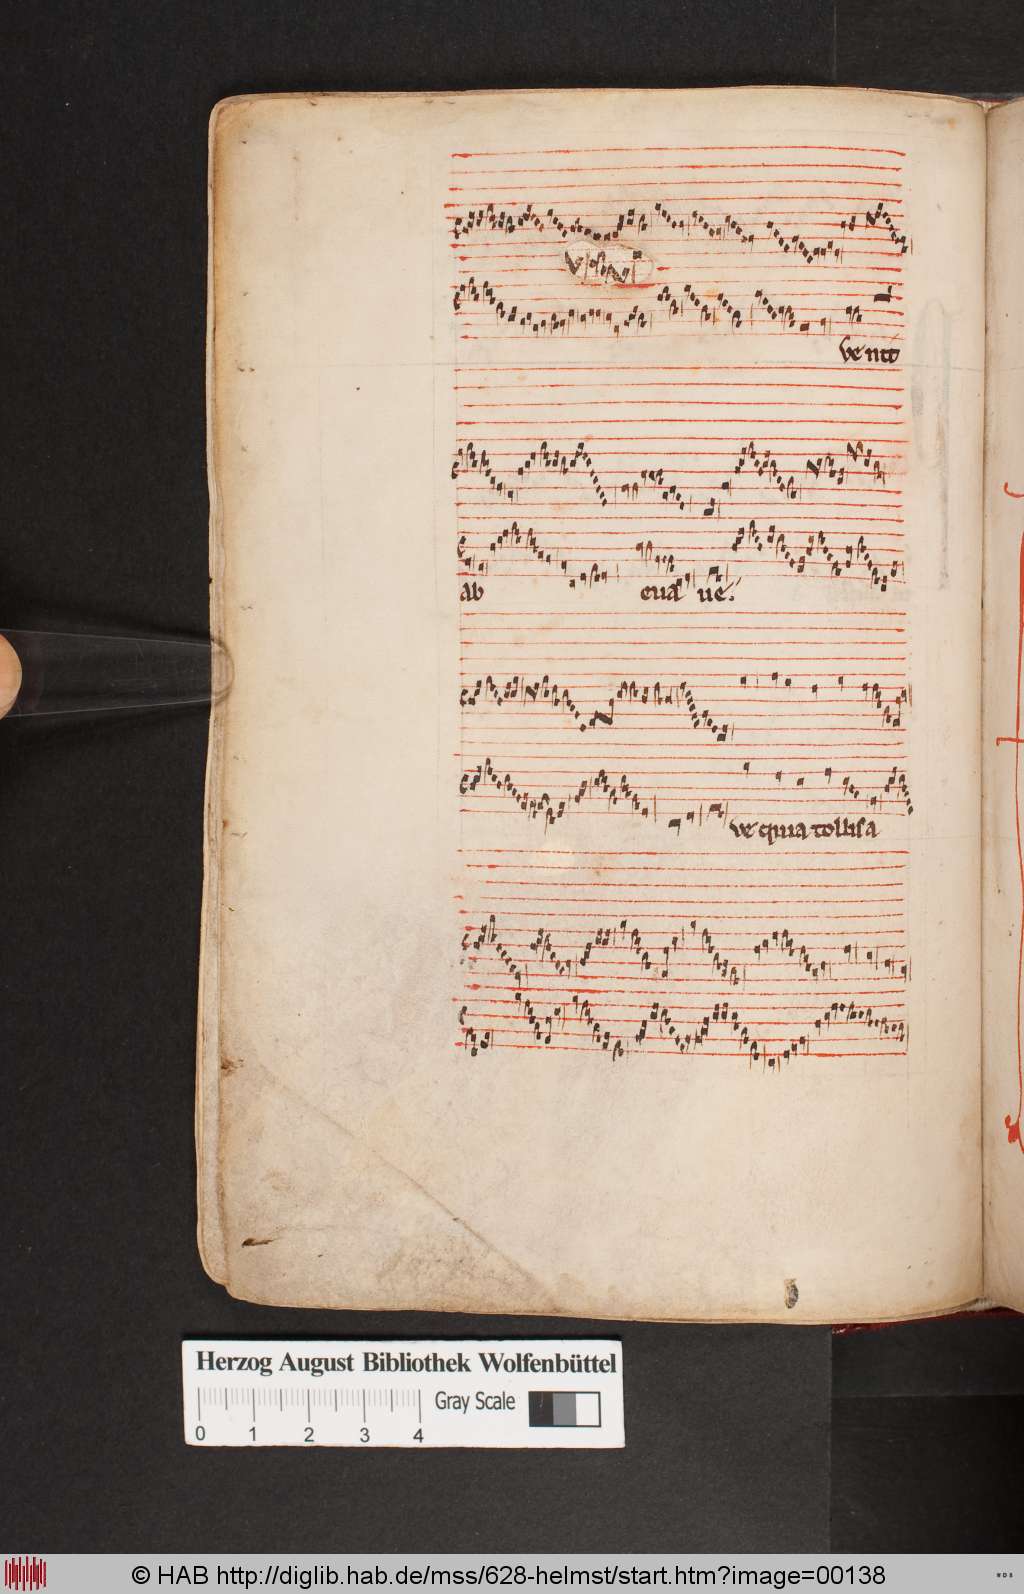 ve nto
ab eua ue.
ve quia tollis a
Herzog August Bibliothek Wolfenbüttel
Gray Scale
0 1 2 3 4
© HAB http://diglib.hab.de/mss/628-helmst/start.htm?image=00138